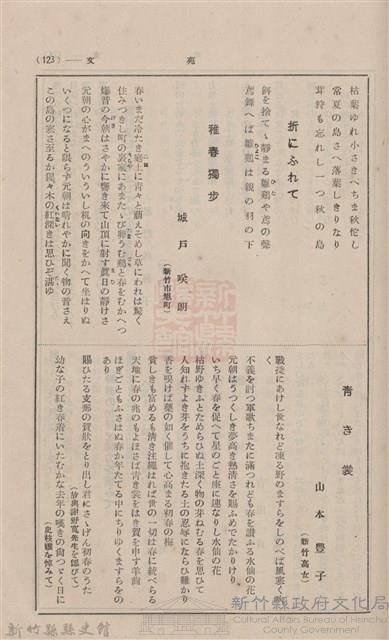 (123)── 文苑
枯葉ゆれ小さきへちま秋佗し
常夏の島さへ落葉しきりなり
茸狩も忘れし一つ秋の島
折にふれて
餌を捨てゝ靜まる雛鶏や鳶の聲
鳶舞へば雛鶏は親の羽の下
雅春獨步
城戸咲朗
(新竹市旭町)
春いまだ冷たき庭土に青々と萠えそめし草にわれは驚く
住みつきし町の裏家にあまたゝび卵うむ鶏と春をむかへつ
爆音の今朝はさやかに響き來て山頂に射す眞日の靜けさ
元朝の心がまへのういういし机の向きをかへて坐はりぬ
いくつになると限らず元朝は晴れやかに聞く物の音さえ
この島の寒さ至るか佷々木の紅深きは思ひぞ湛ゆ
青き裳
山本豐子
(新竹高女)
戰捷にあけし世なれど凍る野のますらをしのべば風寒く
く
不義を討つ軍歌ちまたに滿つれども春を讃ふる水仙の花
元朝はうつくしき夢高き熱清さを賜ふめでたかりけり
いち早く春を促へて星のごと座に連なりし水仙の花
枯野ゆきふとためらひぬ土深く物の芽ねむる春を思ひて
人知れずよき芽をうちに抱きたる土の忍辱にならひ難かり
香を嗅げば藥の如く催して心高まる初春の梅
貧しきも富めるも清き注繩はれば世の一切は春に統べらる
天地に春の兆のもよほさば青き裳をはき賀を申す羊齒
ほぎごともふさはぬ春か年たてる中にちりゆくますらをの
あり
賜ひたる支那の賀狀をとり出し君にさゝげん初春のうた
(故與謝野寬先生を偲びて)
幼な子の紅き春着にいたむかな去年の嘆きの尙つゞく日に
(庇枝孃を悼みて)
新竹縣縣史館
新竹縣政府文化局
Cultural Affairs Bureau of Hsinchu
County Government